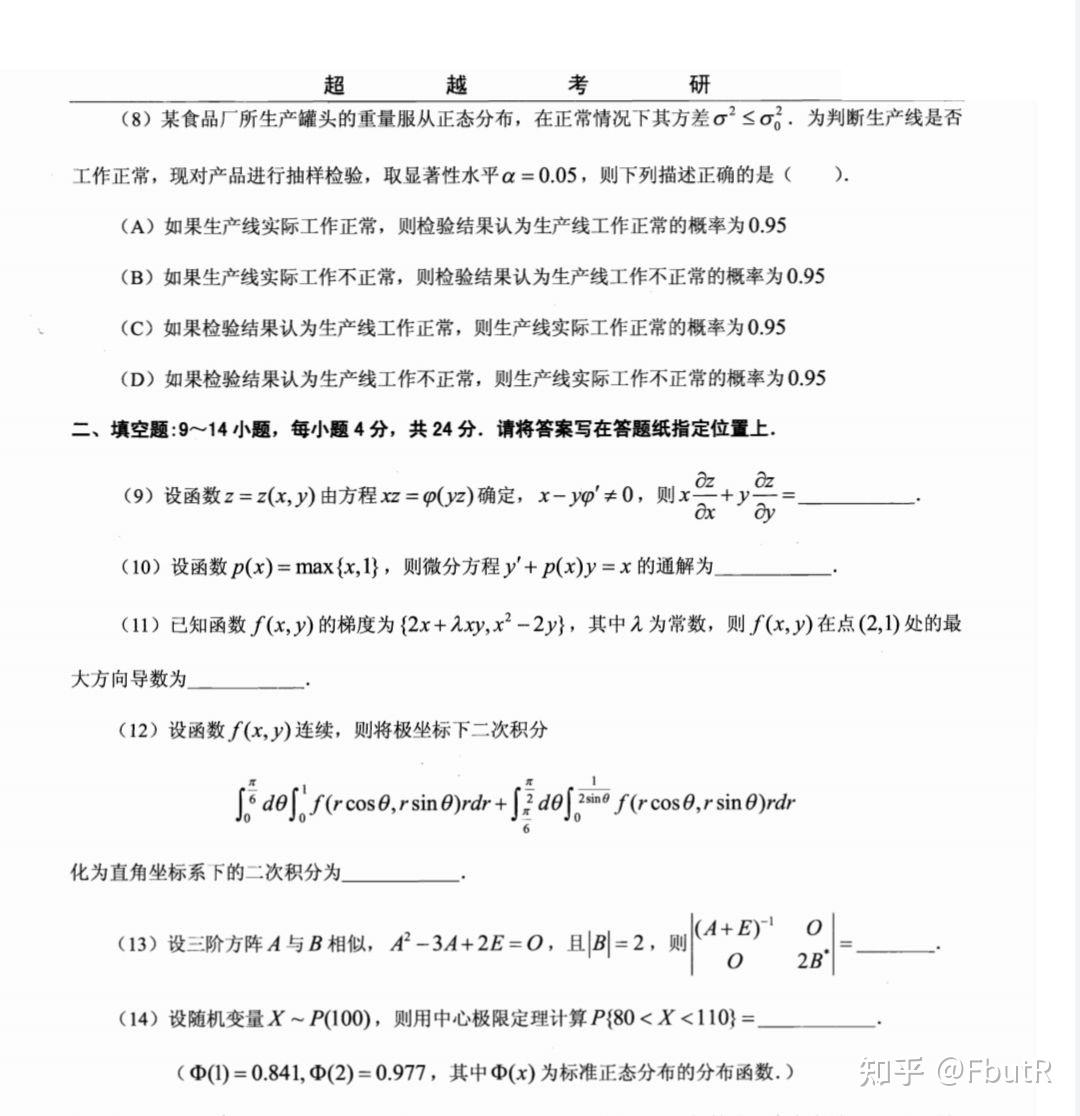 超 越 考 研
（8）某食品厂所生产罐头的重量服从正态分布，在正常情况下其方差σ² ≤ σ₀²．为判断生产线是否
工作正常，现对产品进行抽样检验，取显著性水平α = 0.05，则下列描述正确的是（　　）．
（A）如果生产线实际工作正常，则检验结果认为生产线工作正常的概率为0.95
（B）如果生产线实际工作不正常，则检验结果认为生产线工作不正常的概率为0.95
（C）如果检验结果认为生产线工作正常，则生产线实际工作正常的概率为0.95
（D）如果检验结果认为生产线工作不正常，则生产线实际工作不正常的概率为0.95
二、填空题:9～14小题，每小题4分，共24分．请将答案写在答题纸指定位置上．
（9）设函数z = z(x, y)由方程xz = φ(yz)确定，x − yφ′ ≠ 0，则x ∂z/∂x + y ∂z/∂y = ________．
（10）设函数p(x) = max{x,1}，则微分方程y′ + p(x)y = x的通解为________．
（11）已知函数f(x, y)的梯度为{2x + λxy, x² − 2y}，其中λ为常数，则f(x, y)在点(2,1)处的最
大方向导数为________．
（12）设函数f(x, y)连续，则将极坐标下二次积分
∫₀^{π/6} dθ ∫₀^{1} f(r cosθ, r sinθ)rdr + ∫_{π/6}^{π/2} dθ ∫₀^{1/(2sinθ)} f(r cosθ, r sinθ)rdr
化为直角坐标系下的二次积分为________．
（13）设三阶方阵A与B相似，A² − 3A + 2E = O，且|B| = 2，则|(A+E)⁻¹ O; O 2B*| = ________．
（14）设随机变量X ~ P(100)，则用中心极限定理计算P{80 < X < 110} = ________．
（Φ(1) = 0.841, Φ(2) = 0.977，其中Φ(x)为标准正态分布的分布函数．）
知乎 @FbutR